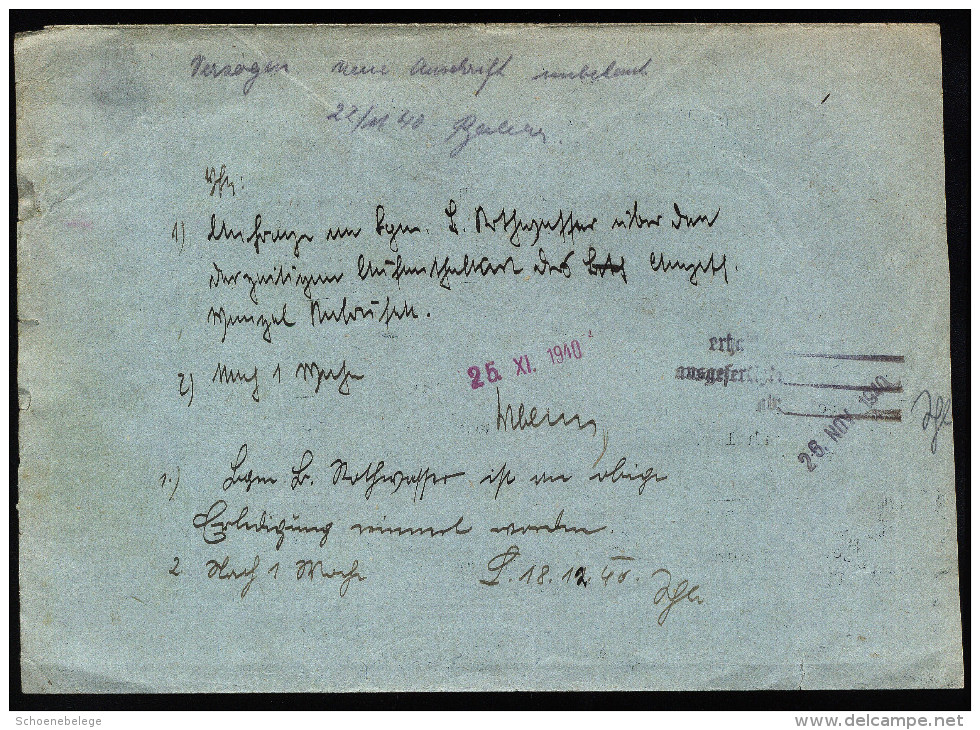 Verzogen neue Anschrift unbekant
22/11 40.
Vfg:
1) Anfrage an Bgm. L. Rothwasser über den
derzeitigen Aufenthaltsort des Angekl.
Wenzel
2) Nach 1 Woche
25. XI. 1940
ausgefertigt
ab
26. NOV. 1940
1.) Bgm Rothwasser ist an obige
Erledigung erinnert worden.
2 Nach 1 Woche
L. 18.12.40.
Schoenebelege
www.delcampe.net